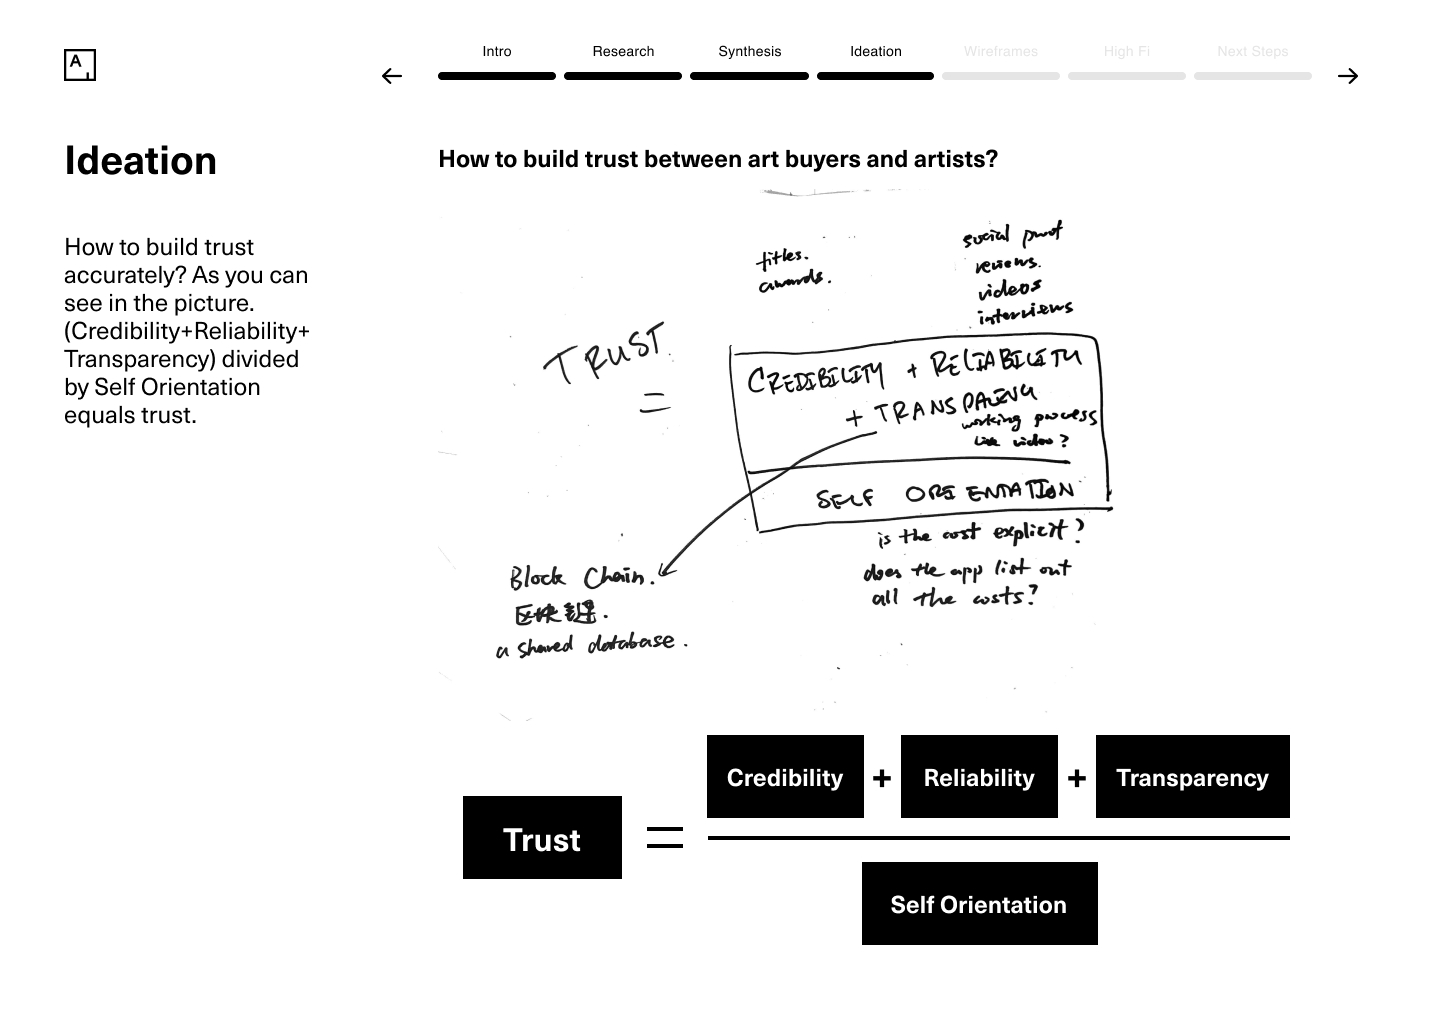 A
Intro
Research
Synthesis
Ideation
Wireframes
High Fi
Next Steps
Ideation
How to build trust
accurately? As you can
see in the picture.
(Credibility+Reliability+
Transparency) divided
by Self Orientation
equals trust.
How to build trust between art buyers and artists?
titles.
awards.
social proof
reviews.
videos
interviews
TRUST
=
CREDIBILITY + RELIABILITY
+ TRANSPARENCY
working process
live video?
SELF ORIENTATION
is the cost explicit?
does the app list out
all the costs?
Block Chain.
区块链.
a shared database.
Trust = Credibility + Reliability + Transparency
Self Orientation